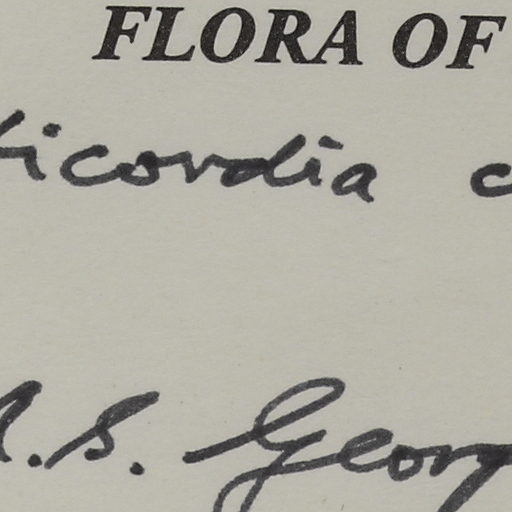 FLORA OF
ticordia c
A.S. Georg